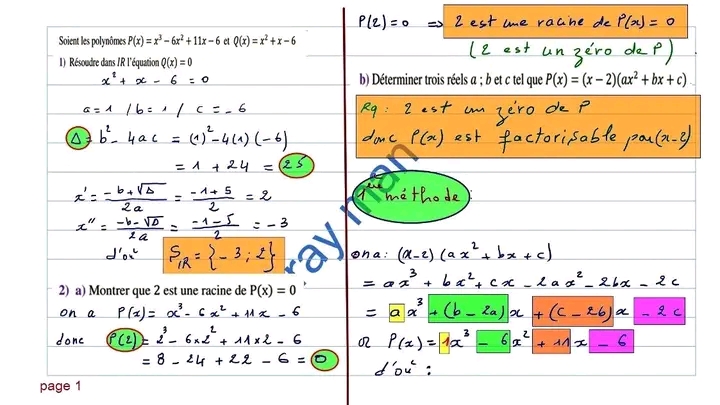 Soient les polynômes P(x) = x³ − 6x² + 11x − 6 et Q(x) = x² + x − 6
1) Résoudre dans IR l'équation Q(x) = 0
x² + x − 6 = 0
a = 1 / b = 1 / c = −6
Δ = b² − 4ac = (1)² − 4(1)(−6)
= 1 + 24 = 25
x' = (−b+√Δ)/2a = (−1+5)/2 = 2
x'' = (−b−√Δ)/2a = (−1−5)/2 = −3
d'où S_IR = {−3 ; 2}
2) a) Montrer que 2 est une racine de P(x) = 0
on a P(x) = x³ − 6x² + 11x − 6
donc P(2) = 2³ − 6×2² + 11×2 − 6
= 8 − 24 + 22 − 6 = 0
page 1
P(2) = 0 ⇒ 2 est une racine de P(x) = 0
(2 est un zéro de P)
b) Déterminer trois réels a ; b et c tel que P(x) = (x − 2)(ax² + bx + c)
Rq : 2 est un zéro de P
donc P(x) est factorisable par (x−2)
1ère méthode :
on a : (x−2) (ax² + bx + c)
= ax³ + bx² + cx − 2ax² − 2bx − 2c
= ax³ + (b − 2a)x + (c − 2b)x − 2c
or P(x) = 1x³ − 6x² + 11x − 6
d'où :
ray man